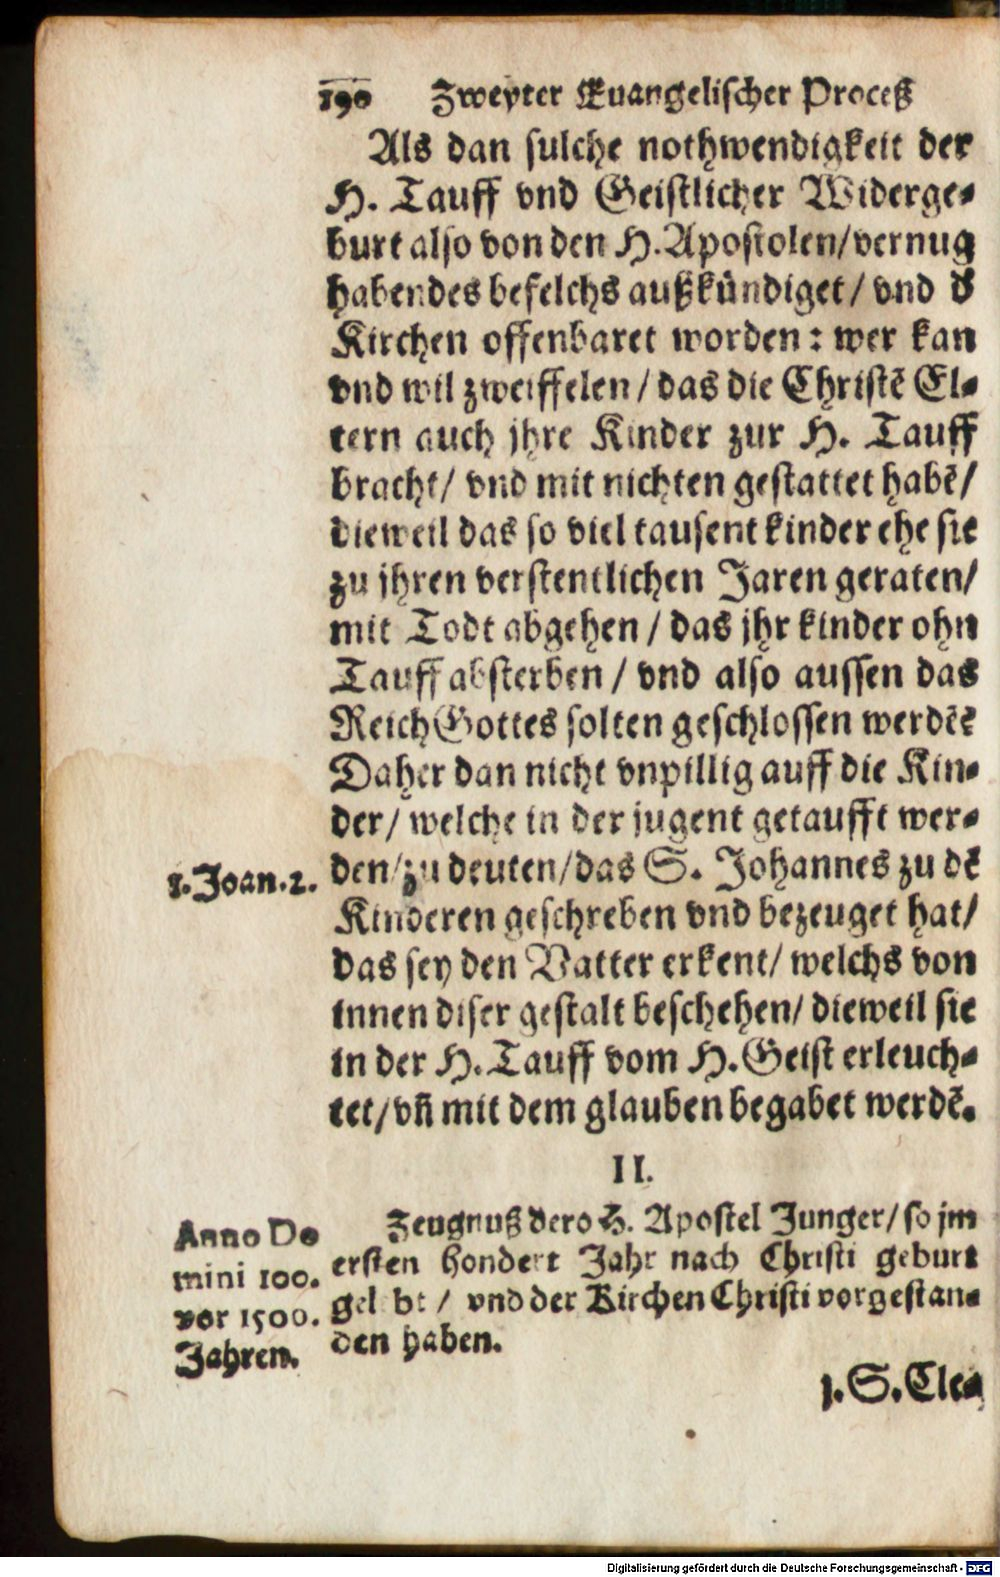 190 Zweyter Euangelischer Proceß
Als dan sulche nothwendigkeit der
H. Tauff vnd Geistlicher Widerge-
burt also von den H. Apostolen/vernug
habendes befelchs außkündiget/ vnd d̄
Kirchen offenbaret worden: wer kan
vnd wil zweiffelen/das die Christē El-
tern auch jhre Kinder zur H. Tauff
bracht/ vnd mit nichten gestattet habē/
dieweil das so viel tausent kinder ehe sie
zu jhren verstentlichen Jaren geraten/
mit Todt abgehen/das jhr kinder ohn
Tauff absterben/ vnd also aussen das
Reich Gottes solten geschlossen werdē?
Daher dan nicht vnpillig auff die Kin-
der/ welche in der jugent getaufft wer-
1. Joan. 2.
den/zu deuten/das S. Johannes zu dē
Kinderen geschreben vnd bezeuget hat/
das sey den Vatter erkent/ welchs von
innen diser gestalt beschehen/ dieweil sie
in der H. Tauff vom H. Geist erleuch-
tet/vn̄ mit dem glauben begabet werdē.
II.
Anno Do
mini 100.
vor 1500.
Jahren.
Zeugnuß dero H. Apostel Junger/so jm
ersten hondert Jahr nach Christi geburt
gelebt/ vnd der Kirchen Christi vorgestan-
den haben.
1. S. Cle-
Digitalisierung gefördert durch die Deutsche Forschungsgemeinschaft - DFG